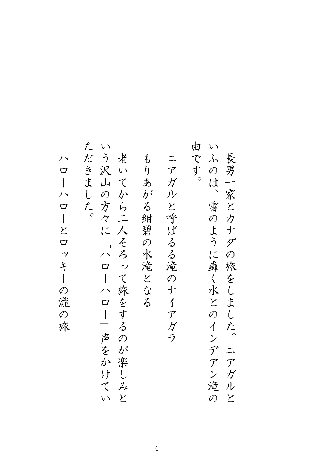 長男一家とカナダの旅をしました。ニアガルと
いふのは、雷のように轟く水とのインデアン達の
由です。
ニアガルと呼ばるる滝のナイアガラ
もりあがる紺碧の水滝となる
老いてから二人そろって旅をするのが楽しみと
いう沢山の方々に「ハローハロー」声をかけてい
ただきました。
ハローハローとロッキーの瀧の旅